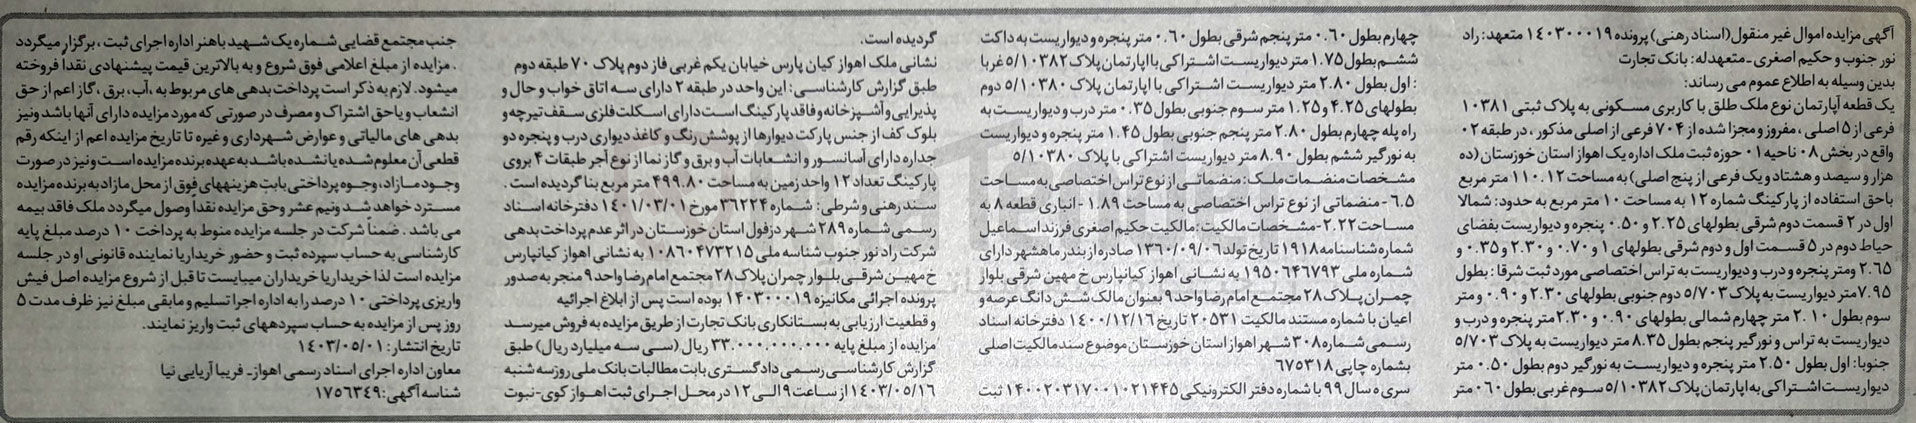 آگهی مزایده اموال غیر منقول (اسناد رهنی) پرونده ۱۴۰۳۰۰۰۱۹ متعهد: راد
نور جنوب و حکیم اصغری -متعهدله: بانک تجارت
بدین وسیله به اطلاع عموم می رساند:
یک قطعه آپارتمان نوع ملک طلق با کاربری مسکونی به پلاک ثبتی ۱۰۳۸۱
فرعی از ۵ اصلی ، مفروز و مجزا شده از ۷۰۴ فرعی از اصلی مذکور ، در طبقه ۰۲
واقع در بخش ۰۸ ناحیه ۰۱ حوزه ثبت ملک اداره یک اهواز استان خوزستان (ده
هزار و سیصد و هشتاد و یک فرعی از پنج اصلی) به مساحت ۱۱۰.۱۲ متر مربع
باحق استفاده از پارکینگ شماره ۱۲ به مساحت ۱۰ متر مربع به حدود: شمالا
اول در ۲ قسمت دوم شرقی بطولهای ۲.۲۵ و ۰.۵۰ پنجره و دیواریست بفضای
حیاط دوم در ۵ قسمت اول و دوم شرقی بطولهای ۱ و ۰.۷۰ و ۲.۳۰ و ۰.۳۵ و
۲.۶۵ ومتر پنجره و درب و دیواریست به تراس اختصاصی مورد ثبت شرقا : بطول
۷.۹۵متر دیواریست به پلاک ۵/۷۰۳ دوم جنوبی بطولهای ۲.۳۰ و ۰.۹۰ و متر
سوم بطول ۲.۱۰ متر چهارم شمالی بطولهای ۰.۹۰ و ۲.۳۰متر پنجره و درب و
دیواریست به تراس و نورگیر پنجم بطول ۸.۳۵ متر دیواریست به پلاک ۵/۷۰۳
جنوبا: اول بطول ۲.۵۰ متر پنجره و دیواریست به نورگیر دوم بطول ۰.۵۰ متر
دیواریست اشتراکی به اپارتمان پلاک ۵/۱۰۳۸۲ سوم غربی بطول ۰۶۰ متر
چهارم بطول ۰.۶۰ متر پنجم شرقی بطول ۰.۶۰ متر پنجره و دیواریست به داکت
ششم بطول ۱.۷۵ متر دیواریست اشتراکی با اپارتمان پلاک ۵/۱۰۳۸۲ غربا
: اول بطول ۲.۸۰ متر دیواریست اشتراکی با اپارتمان پلاک ۵/۱۰۳۸۰ دوم
بطولهای ۴.۲۵ و ۱.۲۵ متر سوم جنوبی بطول ۰.۳۵ متر درب و دیواریست به
راه پله چهارم بطول ۲.۸۰ متر پنجم جنوبی بطول ۱.۴۵ متر پنجره و دیواریست
به نورگیر ششم بطول ۸.۹۰ متر دیواریست اشتراکی با پلاک ۵/۱۰۳۸۰
مشخصات منضمات ملک: منضماتی از نوع تراس اختصاصی به مساحت
۶.۵ - منضماتی از نوع تراس اختصاصی به مساحت ۱.۸۹ - انباری قطعه ۸ به
مساحت ۲.۲۲-مشخصات مالکیت: مالکیت حکیم اصغری فرزند اسماعیل
شماره شناسنامه ۱۹۱۸ تاریخ تولد ۱۳۶۰/۰۹/۰۶ صادره از بندر ماهشهر دارای
شماره ملی ۱۹۵۰۶۴۶۷۹۳ به نشانی اهواز کیانپارس خ مهین شرقی بلوار
چمران پلاک ۲۸ مجتمع امام رضا واحد ۹ بعنوان مالک شش دانگ عرصه و
اعیان با شماره مستند مالکیت ۲۰۵۳۱ تاریخ ۱۴۰۰/۱۲/۱۶ دفترخانه اسناد
رسمی شماره ۳۰۸ شهر اهواز استان خوزستان موضوع سند مالکیت اصلی
بشماره چاپی ۶۷۵۳۱۸
سری ه سال ۹۹ با شماره دفتر الکترونیکی ۱۴۰۰۲۰۳۱۷۰۰۱۰۲۱۴۴۵ ثبت
گردیده است.
نشانی ملک اهواز کیان پارس خیابان یکم غربی فاز دوم پلاک ۷۰ طبقه دوم
طبق گزارش کارشناسی: این واحد در طبقه ۲ دارای سه اتاق خواب و حال و
پذیرایی و آشپزخانه و فاقد پارکینگ است دارای اسکلت فلزی سقف تیرچه و
بلوک کف از جنس پارکت دیوارها از پوشش رنگ و کاغذ دیواری درب و پنجره دو
جداره دارای آسانسور و انشعابات آب و برق و گاز نما از نوع آجر طبقات ۴ بروی
پارکینگ تعداد ۱۲ واحد زمین به مساحت ۴۹۹.۸۰ متر مربع بنا گردیده است .
سند رهنی و شرطی: شماره ۳۶۲۲۴ مورخ ۱۴۰۱/۰۳/۰۱ دفترخانه اسناد
رسمی شماره ۲۸۹ شهر دزفول استان خوزستان در اثر عدم پرداخت بدهی
شرکت راد نور جنوب شناسه ملی ۱۰۸۶۰۴۷۳۲۱۵ به نشانی اهواز کیانپارس
خ مهین شرقی بلوار چمران پلاک ۲۸ مجتمع امام رضا واحد ۹ منجر به صدور
پرونده اجرائی مکانیزه ۱۴۰۳۰۰۰۱۹ بوده است پس از ابلاغ اجرائیه
و قطعیت ارزیابی به بستانکاری بانک تجارت از طریق مزایده به فروش میرسد
مزایده از مبلغ پایه ۳۳.۰۰۰.۰۰۰.۰۰۰ ریال (سی سه میلیارد ریال) طبق
گزارش کارشناسی رسمی دادگستری بابت مطالبات بانک ملی روز سه شنبه
۱۴۰۳/۰۵/۱۶ از ساعت ۹ الی ۱۲ در محل اجرای ثبت اهواز کوی-نبوت
جنب مجتمع قضایی شماره یک شهید باهنر اداره اجرای ثبت ، برگزار میگردد
. مزایده از مبلغ اعلامی فوق شروع و به بالاترین قیمت پیشنهادی نقداً فروخته
میشود. لازم به ذکر است پرداخت بدهی های مربوط به ،آب، برق ، گاز اعم از حق
انشعاب و یا حق اشتراک و مصرف در صورتی که مورد مزایده دارای آنها باشد و نیز
بدهی های مالیاتی و عوارض شهرداری و غیره تا تاریخ مزایده اعم از اینکه رقم
قطعی آن معلوم شده یا نشده باشد به عهده برنده مزایده است و نیز در صورت
وجود مازاد، وجوه پرداختی بابت هزینههای فوق از محل مازاد به برنده مزایده
مسترد خواهد شد ونیم عشر وحق مزایده نقداً وصول میگردد ملک فاقد بیمه
می باشد . ضمناً شرکت در جلسه مزایده منوط به پرداخت ۱۰ درصد مبلغ پایه
کارشناسی به حساب سپرده ثبت و حضور خریدار یا نماینده قانونی او در جلسه
مزایده است لذا خریدار یا خریداران میبایست تا قبل از شروع مزایده اصل فیش
واریزی پرداختی ۱۰ درصد را به اداره اجرا تسلیم و مابقی مبلغ نیز ظرف مدت ۵
روز پس از مزایده به حساب سپردههای ثبت واریز نمایند.
تاریخ انتشار: ۱۴۰۳/۰۵/۰۱
معاون اداره اجرای اسناد رسمی اهواز- فریبا آریایی نیا
شناسه آگهی: ۱۷۵۶۳۴۹